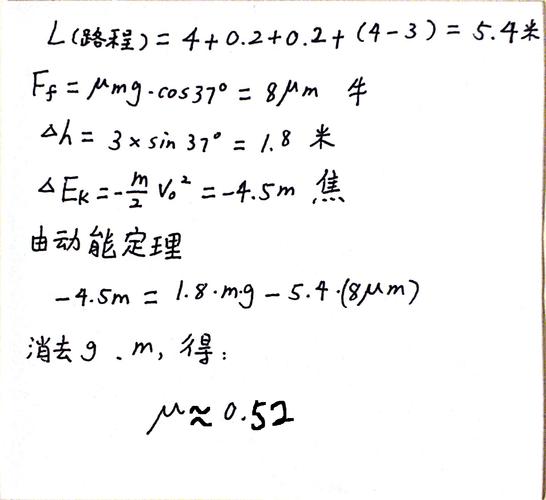 L(路程) = 4+0.2+0.2+(4-3) = 5.4米
Ff = μmg·cos37° = 8μm 牛
Δh = 3×sin 37° = 1.8 米
ΔEK = -m/2 V₀² = -4.5m 焦
由动能定理
-4.5m = 1.8·m·g - 5.4·(8μm)
消去 g、m, 得:
μ≈0.52